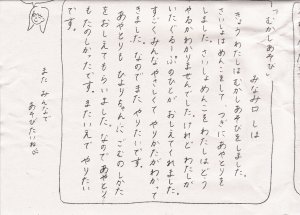 「むかしあそび」
みなみ口 しほ
きょうわたしはむかしあそびをしました。
さいしょはめんこをして つぎにあやとりを
しました。さいしょめんこをわたしはどう
やるかわかりませんでした。けれど わたしが
いたぐるーぷのひとが おしえてくれました。
すごくみんなやさしくて やりかたがわかって
きました。なのでまた やりたいです。
あやとりも ひよりちゃんに ごむのしかた
をおしえてもらいました。なので あやとり
もたのしかったです。またいえで やりたい
です。
また みんなで
あそびたいね